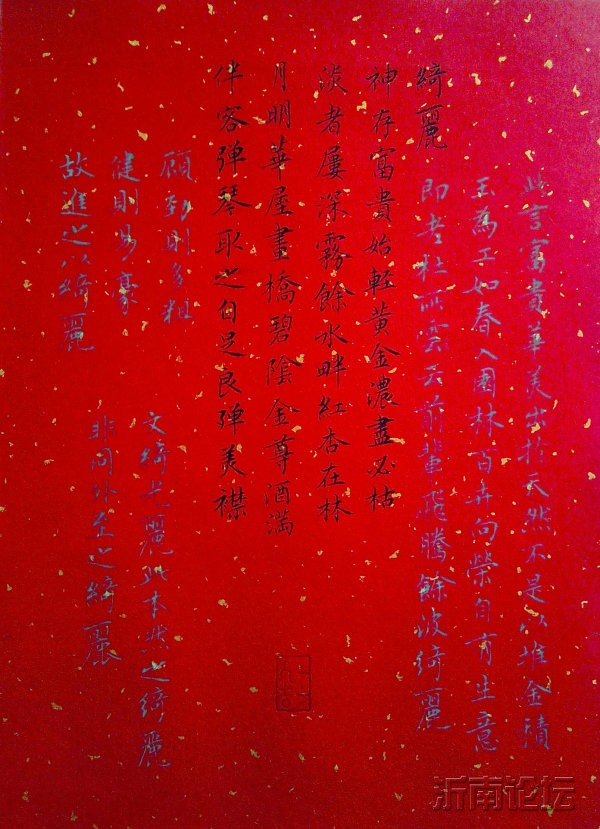 此言富貴華美出於天然不是以堆金積
玉為工如春入園林百卉向榮自有生意
即老杜所雲云前輩飛騰餘波綺麗
綺麗
神存富貴始軽黃金濃盡必枯
淡者屢深霧餘水畔紅杏在林
月明華屋畫橋碧陰金尊酒滿
伴客弹琴取之自足良弹美襟
顧勁則多粗
健則易豪
故進之以綺麗
文綺光麗此本然之綺麗
非同外至之綺麗
浙南论坛